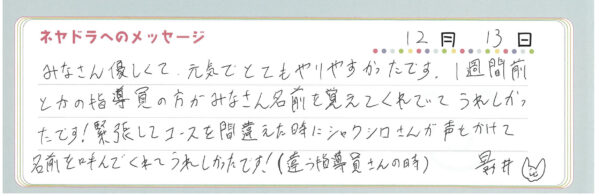 ネヤドラへのメッセージ 12月 13日
みなさん優しくて、元気でとてもやりやすかったです。1週間前
とかの指導員の方がみなさん名前を覚えてくれていてうれしかっ
たです!緊張してコースを間違えた時にシャクシロさんが声をかけて
名前を呼んでくれてうれしかったです!(違う指導員さんの時)